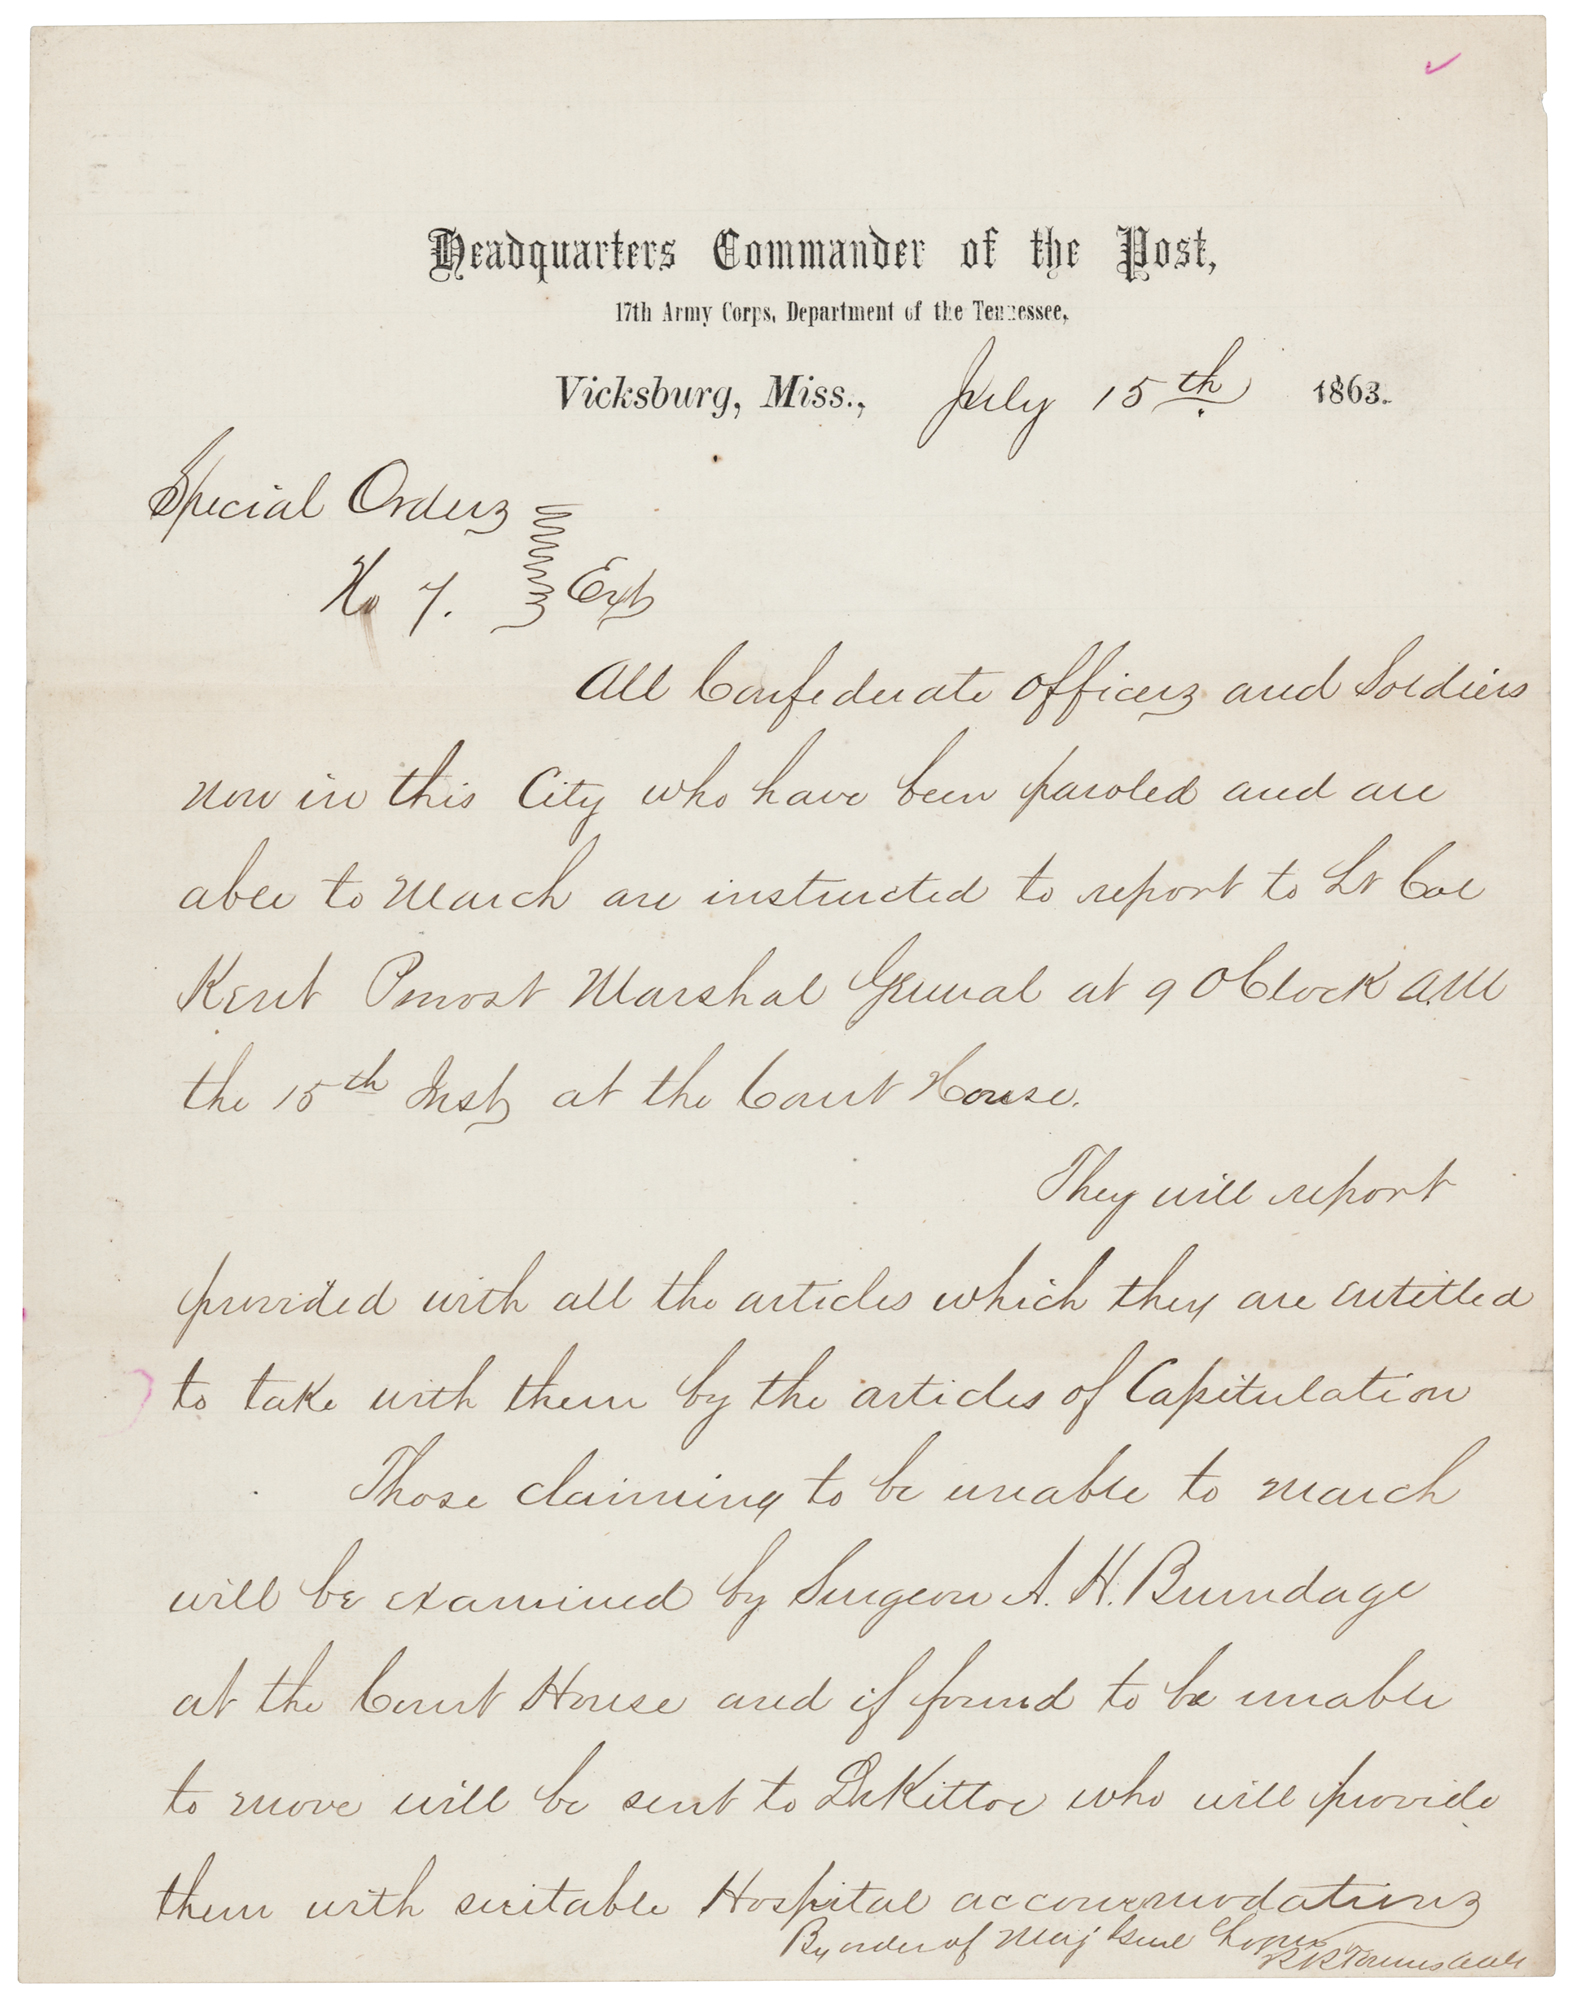 Headquarters Commander of the Post,
17th Army Corps, Department of the Tennessee,
Vicksburg, Miss., July 15th 1863.
Special Orders
No 7. Ext
All Confederate officers and Soldiers
now in this City who have been paroled and are
able to March are instructed to report to Lt Col
Kent Provost Marshal General at 9 OClock A.M
the 15th Inst at the Court House.
They will report
provided with all the articles which they are entitled
to take with them by the articles of Capitulation
Those claiming to be unable to march
will be examined by Surgeon A. H. Brundage
at the Court House and if found to be unable
to move will be sent to Dr Kittoe who will provide
them with suitable Hospital accommodations
By order of Maj Genl